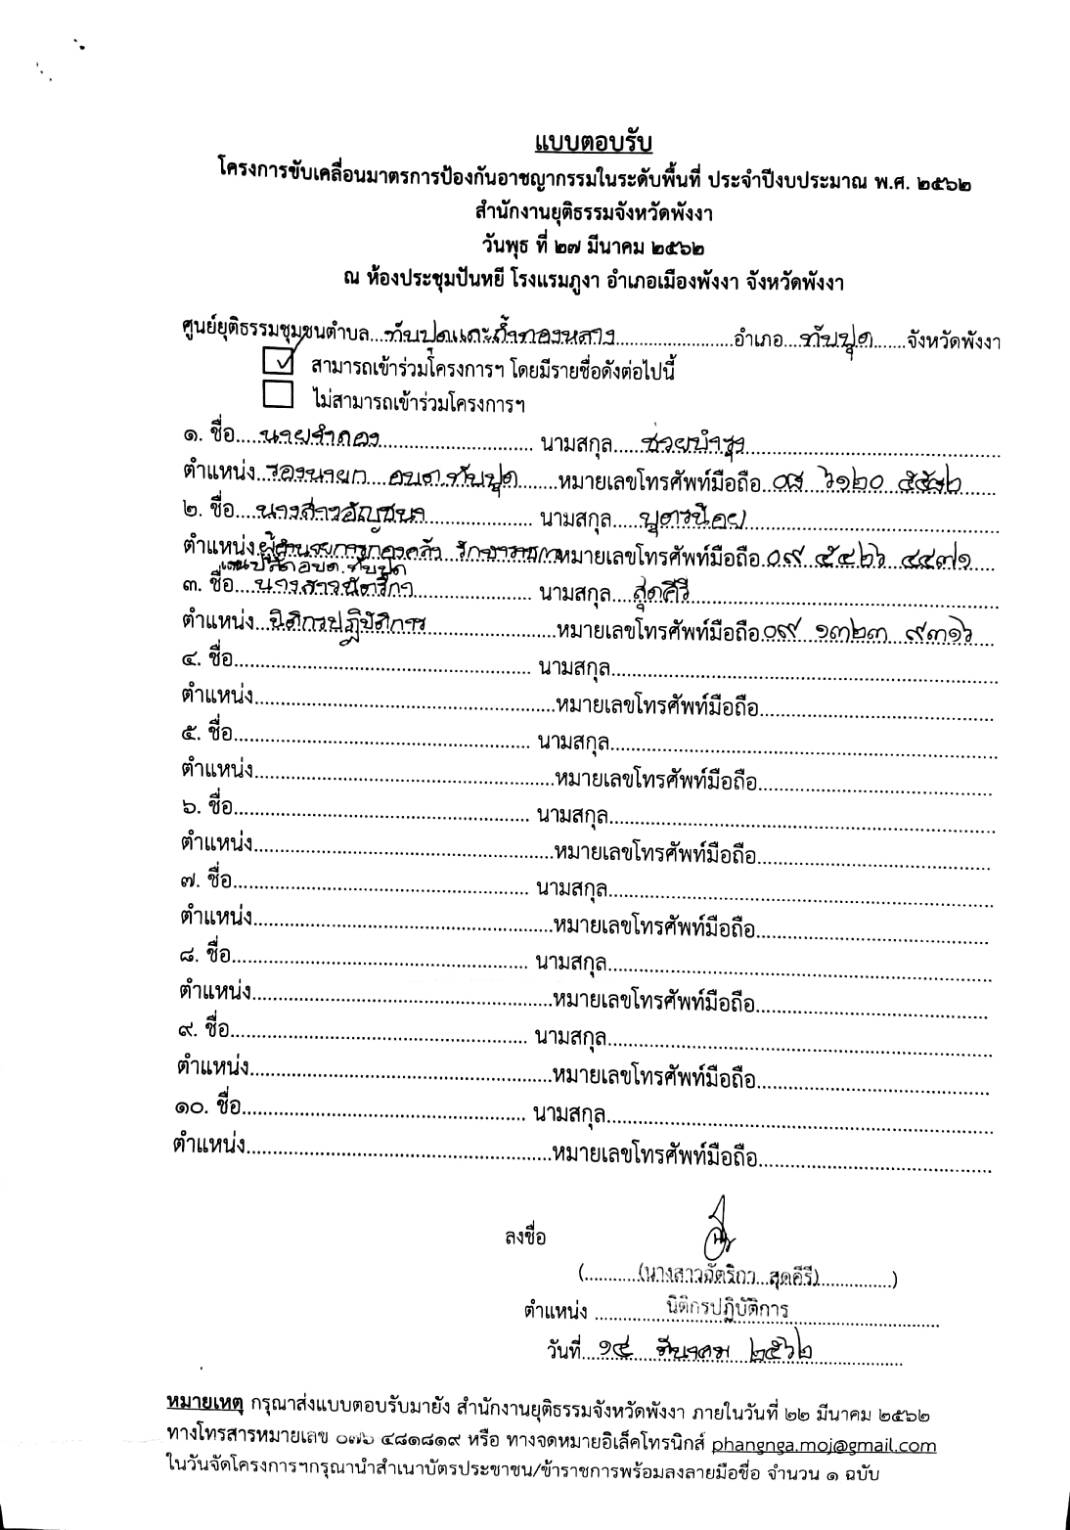 แบบตอบรับ
โครงการขับเคลื่อนมาตรการป้องกันอาชญากรรมในระดับพื้นที่ ประจำปีงบประมาณ พ.ศ. ๒๕๖๒
สำนักงานยุติธรรมจังหวัดพังงา
วันพุธ ที่ ๒๗ มีนาคม ๒๕๖๒
ณ ห้องประชุมปันหยี โรงแรมภูงา อำเภอเมืองพังงา จังหวัดพังงา
ศูนย์ยุติธรรมชุมชนตำบล...ทับปุดและถ้ำทองหลาง...อำเภอ...ทับปุด...จังหวัดพังงา
สามารถเข้าร่วมโครงการฯ โดยมีรายชื่อดังต่อไปนี้
ไม่สามารถเข้าร่วมโครงการฯ
๑. ชื่อ...นายจำลอง... นามสกุล...ช่วยบำรุง...
ตำแหน่ง...รองนายก อบต.ทับปุด...หมายเลขโทรศัพท์มือถือ...๐๘ ๖๑๒๐ ๕๕๗๒...
๒. ชื่อ...นางสาวอัญชนา... นามสกุล...บุตรน้อย...
ตำแหน่ง...ผู้อำนวยการกองคลัง รักษาราชการ...หมายเลขโทรศัพท์มือถือ...๐๙ ๕๔๒๖ ๔๔๗๑
แทนปลัดอบต.ทับปุด
๓. ชื่อ...นางสาวฉัตริกา... นามสกุล...สุดคีรี...
ตำแหน่ง...นิติกรปฏิบัติการ...หมายเลขโทรศัพท์มือถือ...๐๙ ๑๓๒๓ ๙๓๑๖
๔. ชื่อ... นามสกุล...
ตำแหน่ง...หมายเลขโทรศัพท์มือถือ...
๕. ชื่อ... นามสกุล...
ตำแหน่ง...หมายเลขโทรศัพท์มือถือ...
๖. ชื่อ... นามสกุล...
ตำแหน่ง...หมายเลขโทรศัพท์มือถือ...
๗. ชื่อ... นามสกุล...
ตำแหน่ง...หมายเลขโทรศัพท์มือถือ...
๘. ชื่อ... นามสกุล...
ตำแหน่ง...หมายเลขโทรศัพท์มือถือ...
๙. ชื่อ... นามสกุล...
ตำแหน่ง...หมายเลขโทรศัพท์มือถือ...
๑๐. ชื่อ... นามสกุล...
ตำแหน่ง...หมายเลขโทรศัพท์มือถือ...
ลงชื่อ
(...(นางสาวฉัตริกา สุดคีรี)...)
ตำแหน่ง...นิติกรปฏิบัติการ...
วันที่...๑๔ มีนาคม ๒๕๖๒...
หมายเหตุ กรุณาส่งแบบตอบรับมายัง สำนักงานยุติธรรมจังหวัดพังงา ภายในวันที่ ๒๒ มีนาคม ๒๕๖๒
ทางโทรสารหมายเลข ๐๗๖ ๔๘๑๘๑๙ หรือ ทางจดหมายอิเล็คโทรนิกส์ phangnga.moj@gmail.com
ในวันจัดโครงการฯกรุณานำสำเนาบัตรประชาชน/ข้าราชการพร้อมลงลายมือชื่อ จำนวน ๑ ฉบับ